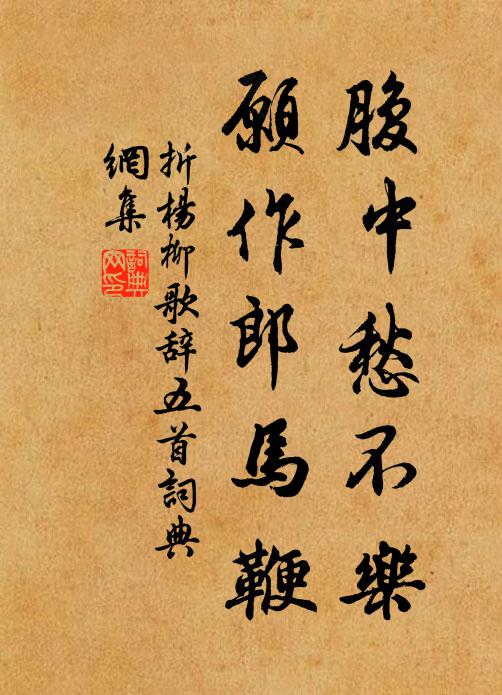 腹中愁不樂
願作郎馬鞭
折楊柳歌辞五首詞典
網集
詞典
网印